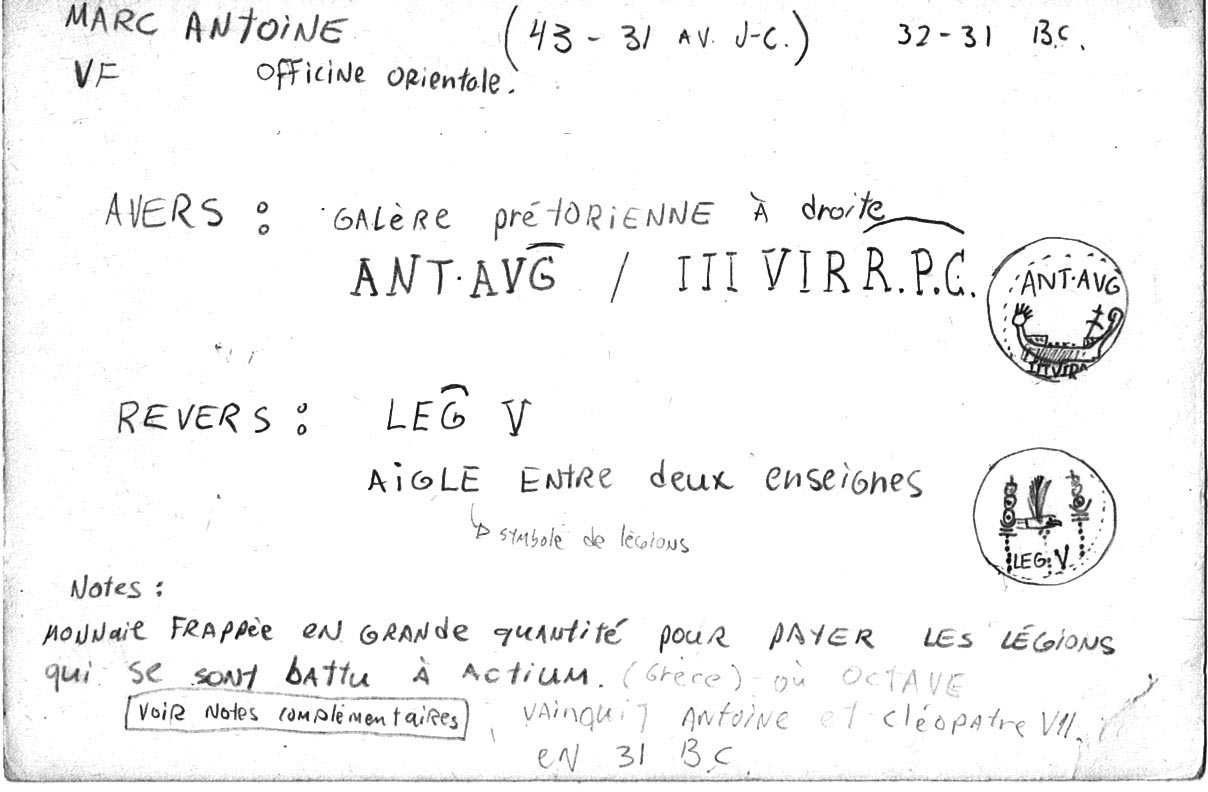 MARC ANTOINE (43 - 31 AV. J-C.) 32-31 B.C.
VF OFFICINE ORIENTALE.
AVERS : GALÈRE préTORIENNE À droite
ANT·AVG / III VIR R.P.C.
ANT·AVG
IIIVIRA
REVERS : LEG V
AIGLE ENTRE deux enseignes
symbole de légions
LEG. V
Notes :
MONNAIE FRAPPÈE EN GRANDE QUANTITÉ POUR PAYER LES LÉGIONS
qui SE SONT bATTU À ACTIUM. (Grèce) où OCTAVE
VOIR Notes complémentaires VAINQUIT ANTOINE et cléopatre VII.
EN 31 B.C